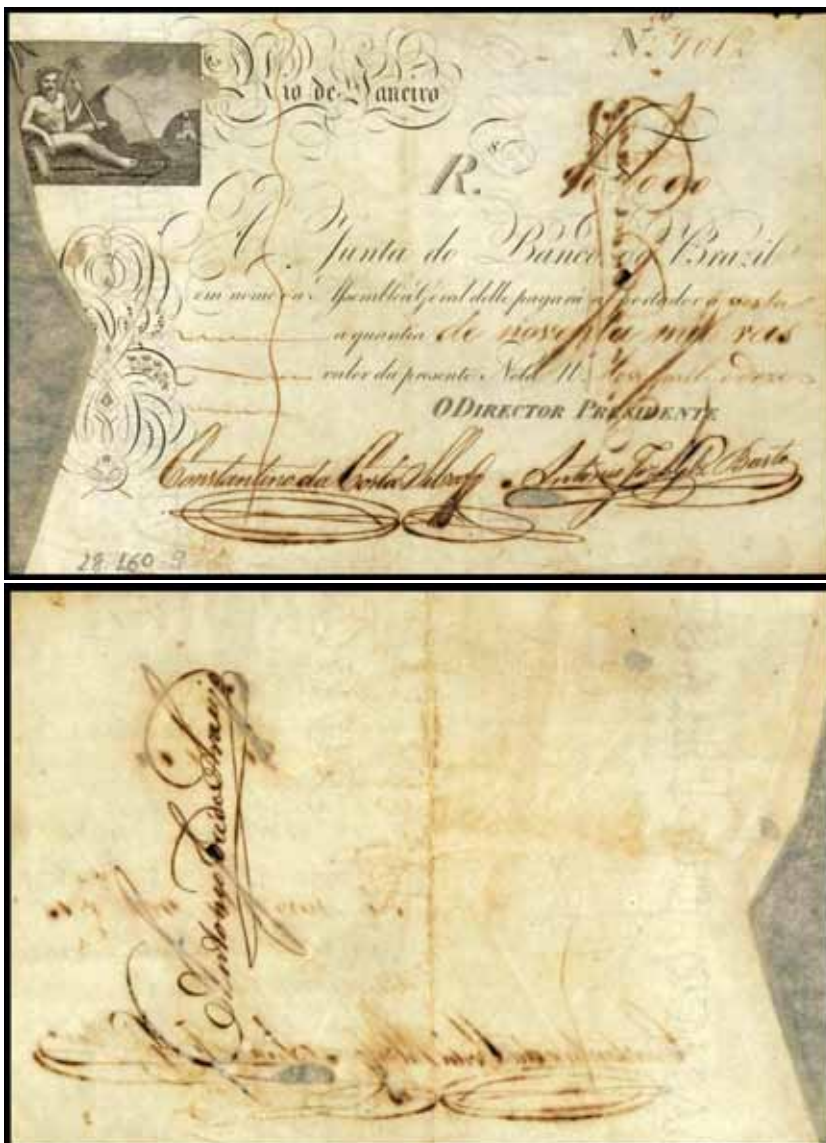 Nº 9012
Rio de Janeiro
R.s 90$000
A Junta do Banco do Brazil
em nome da Assemblea Geral delle pagará ao portador á vista
a quantia de noventa mil reis
valor da presente Nota
O DIRECTOR PRESIDENTE
Constantino da Costa Antonio
28 160 9
Antonio Araujo